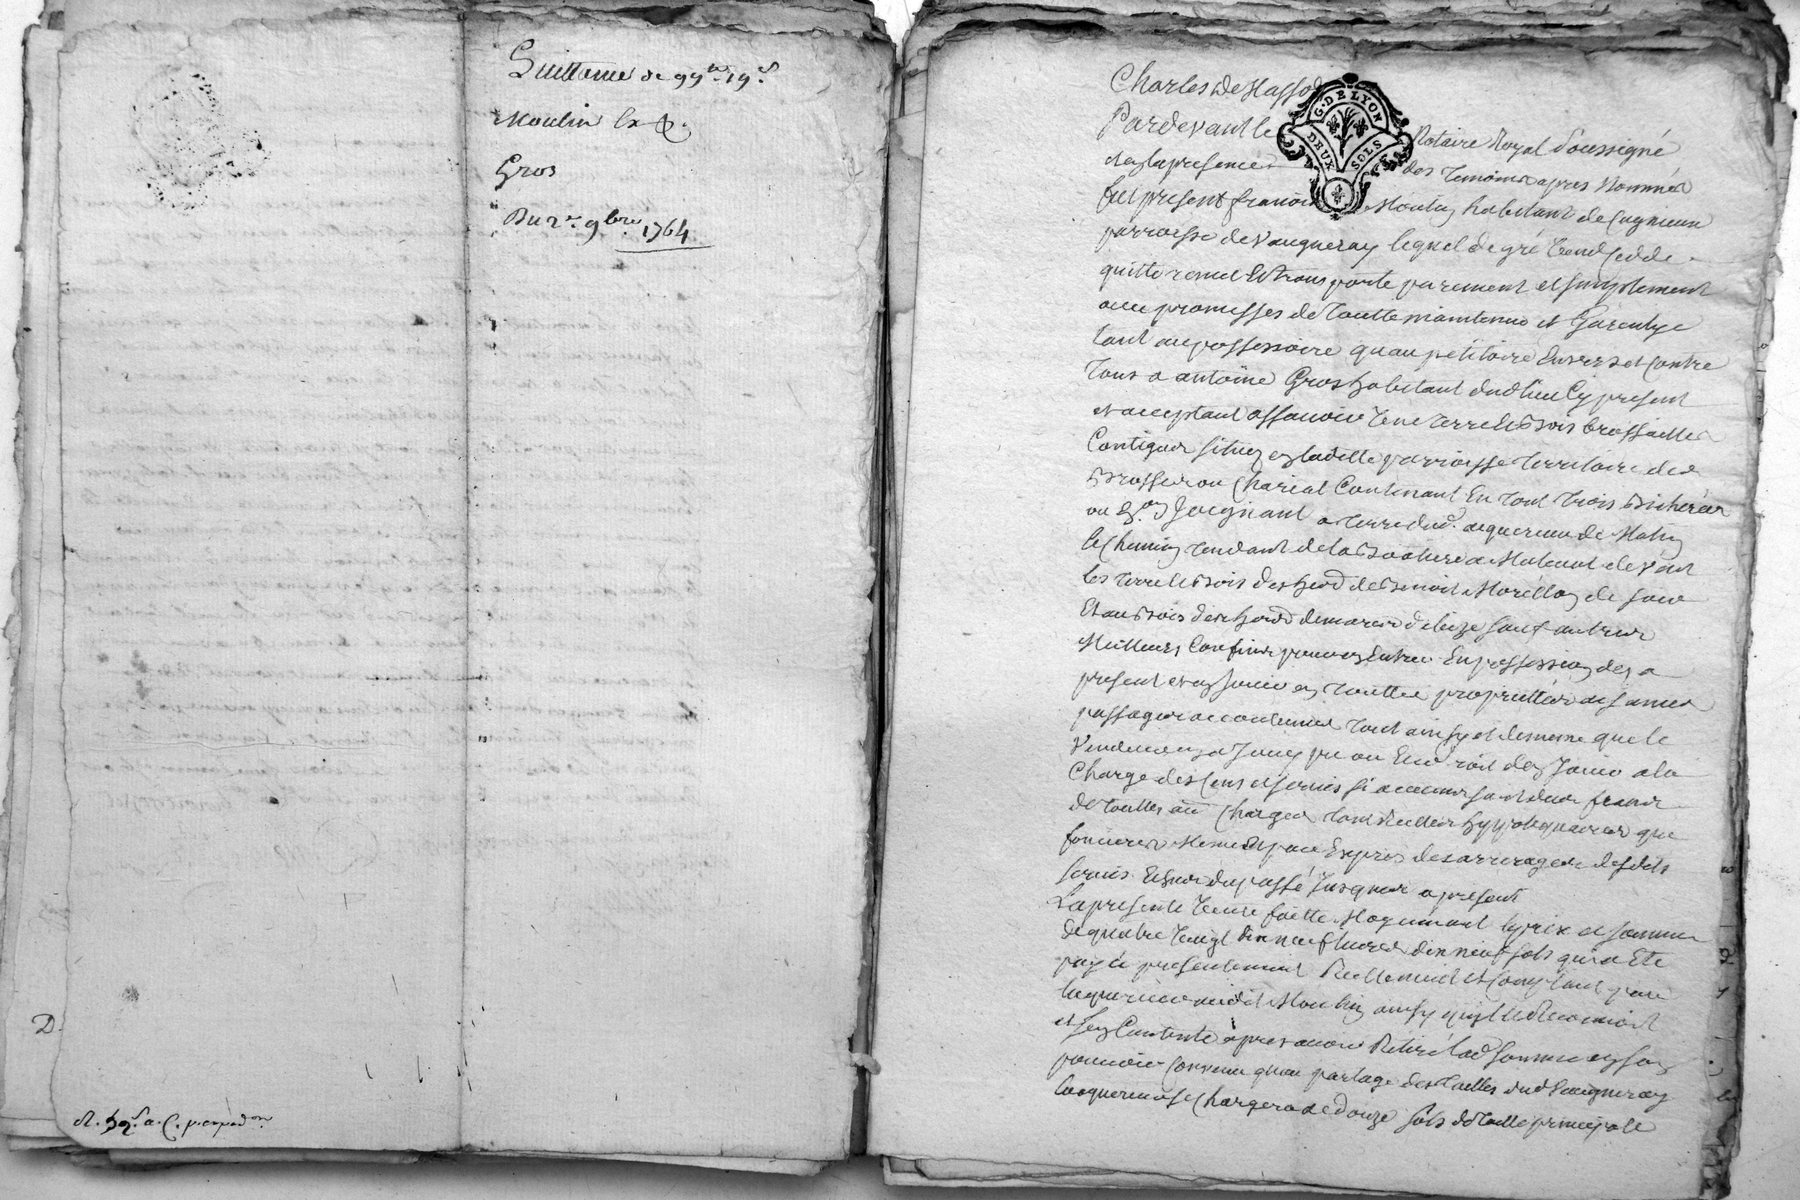 Quittance de 99ᵗᵗ 19ˢ
Moulin &
Gros
Du 2ᵉ 9bre 1764
D.
Charles de
G. DE LYON
DEUX SOLS
Pardevant le Notaire Royal soussigné
et en la presence des temoins apres nommés
fut present françois Moulin habitant de
parroisse de Vaugneray lequel de gré vend cedde
quitte remet et transporte purement et simplement
avec promesses de toutte maintenue et Garentye
tant au possessoire quau petitoire Envers et Contre
Tous a antoine Gros habitant dud lieu Cy present
et acceptant assavoir une terre et bois brossailles
Contigus situez en laditte parroisse territoire des
Brosses ou Chariat Contenant En tout trois bicherées
ou Eon Joignant a terre dud. acquereur de Matin
le Chemin tendant de la a de vent
les terre et bois des herd de benoit Morellon de soir
Et au bois des herd de bize sauf autres
Meilleurs Confins pouvoir Entrer En possession des a
present et en Jouir en touttes proprietté aisances
passages accoutumés tout ainsy et demesme que le
Vendeur en a Jouy pu ou Eu droit den Jouir a la
Charge des Cens et servis si aucuns sont dus franc
de touttes au Charges tant dettes hyppotequaires que
foncieres Mesme par Expres des arrerages desdits
servis Echus du passé Jusques a present
La presente Vente faitte Moyennant le prix et somme
de quatre vingt dix neuf livres dix neuf sols qui a Eté
payée presentement Reellement et Comptant par
lacquereur audit Moulin ainsy quil le Reconnoit
et sen Contente apres avoir Retiré lad somme en son
pouvoir Convenu quau partage des tailles dud Vaugneray
lacquereur se Chargera de douze sols de taille principale